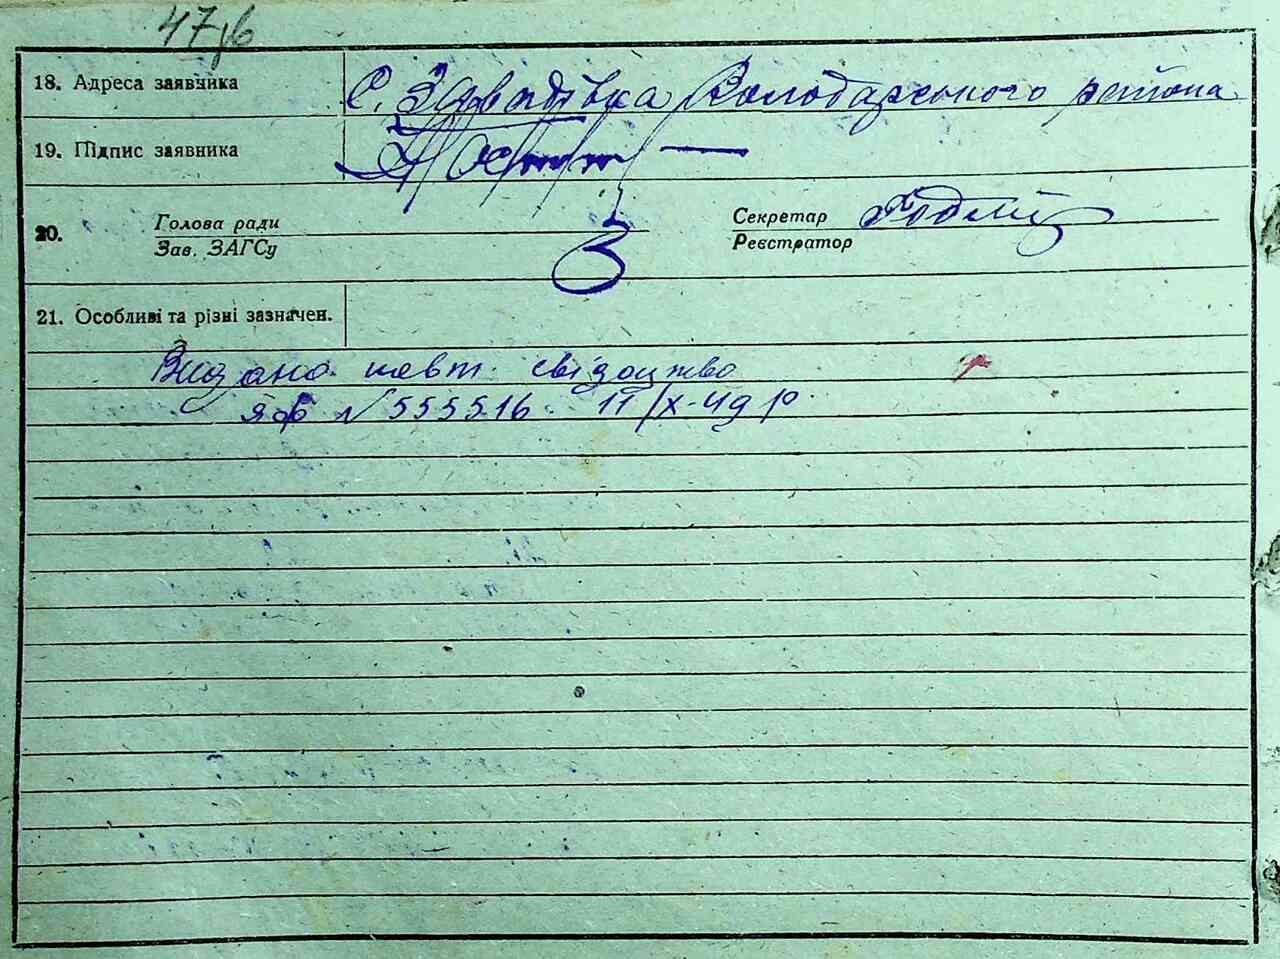 47зв
18. Адреса заявника С. Завадівка Володарського района
19. Підпис заявника
20. Голова ради Секретар
Зав. ЗАГСу Реєстратор
21. Особливі та різні зазначен.
Видано повт. свідоцтво
№ 555516. 11/X-49 р.